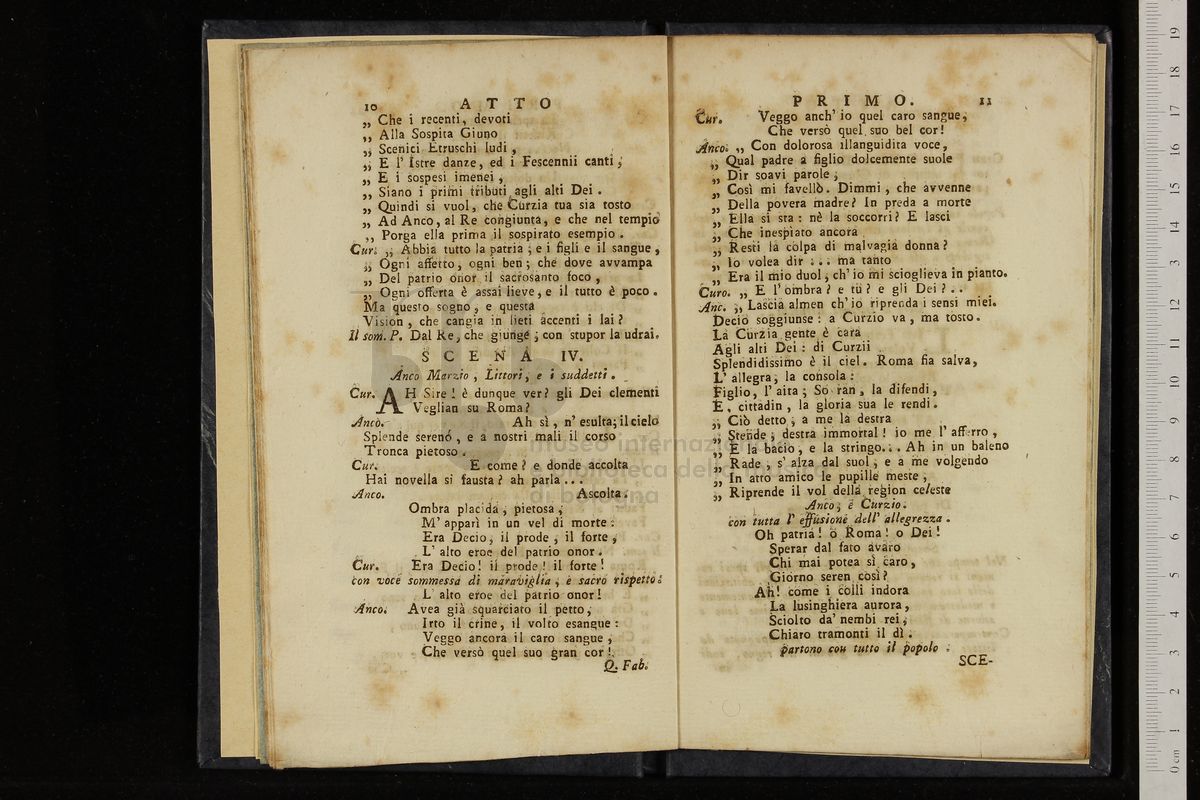 10 ATTO
„ Che i recenti, devoti
„ Alla Sospita Giuno
„ Scenici Etruschi ludi,
„ E l' Istre danze, ed i Fescennii canti,
„ E i sospesi imenei,
„ Siano i primi tributi agli alti Dei.
„ Quindi si vuol, che Curzia tua sia tosto
„ Ad Anco, al Re congiunta, e che nel tempio
„ Porga ella prima il sospirato esempio.
Cur. „ Abbia tutto la patria; e i figli e il sangue,
„ Ogni affetto, ogni ben; che dove avvampa
„ Del patrio onor il sacrosanto foco,
„ Ogni offerta è assai lieve, e il tutto è poco.
Ma questo sogno, e questa
Vision, che cangia in lieti accenti i lai?
Il som. P. Dal Re, che giunge, con stupor la udrai.
SCENA IV.
Anco Marzio, Littori, e i suddetti.
Cur. AH Sire! è dunque ver? gli Dei clementi
Veglian su Roma?
Anco. Ah sì, n' esulta; il cielo
Splende sereno, e a nostri mali il corso
Tronca pietoso.
Cur. E come? e donde accolta
Hai novella si fausta? ah parla...
Anco. Ascolta.
Ombra placida, pietosa,
M' apparì in un vel di morte:
Era Decio, il prode, il forte,
L' alto eroe del patrio onor.
Cur. Era Decio! il prode! il forte!
con voce sommessa di maraviglia, e sacro rispetto.
L' alto eroe del patrio onor!
Anco. Avea già squarciato il petto,
Irto il crine, il volto esangue:
Veggo ancora il caro sangue,
Che versò quel suo gran cor!
Q. Fab.
PRIMO. 11
Cur. Veggo anch' io quel caro sangue,
Che versò quel suo bel cor!
Anco. „ Con dolorosa illanguidita voce,
„ Qual padre a figlio dolcemente suole
„ Dir soavi parole,
„ Così mi favellò. Dimmi, che avvenne
„ Della povera madre? In preda a morte
„ Ella si sta: nè la soccorri? E lasci
„ Che inespiato ancora
„ Resti la colpa di malvagia donna?
„ Io volea dir... ma tanto
„ Era il mio duol, ch' io mi scioglieva in pianto.
Curo. „ E l' ombra? e tu? e gli Dei?..
Anc. „ Lascia almen ch' io riprenda i sensi miei.
Decio soggiunse: a Curzio va, ma tosto.
La Curzia gente è cara
Agli alti Dei: di Curzii
Splendidissimo è il ciel. Roma fia salva,
L' allegra, la consola:
Figlio, l' aita; So ran, la difendi,
E, cittadin, la gloria sua le rendi.
„ Ciò detto, a me la destra
„ Stende, destra immortal! io me l' afferro,
„ E la bacio, e la stringo... Ah in un baleno
„ Rade, s' alza dal suol, e a me volgendo
„ In atto amico le pupille meste,
„ Riprende il vol della region celeste
Anco, e Curzio.
con tutta l' effusione dell' allegrezza.
Oh patria! o Roma! o Dei!
Sperar dal fato avaro
Chi mai potea sì caro,
Giorno seren così?
Ah! come i colli indora
La lusinghiera aurora,
Sciolto da' nembi rei,
Chiaro tramonti il dì.
partono con tutto il popolo.
SCE-
museo internazionale
biblioteca della musica
di bologna